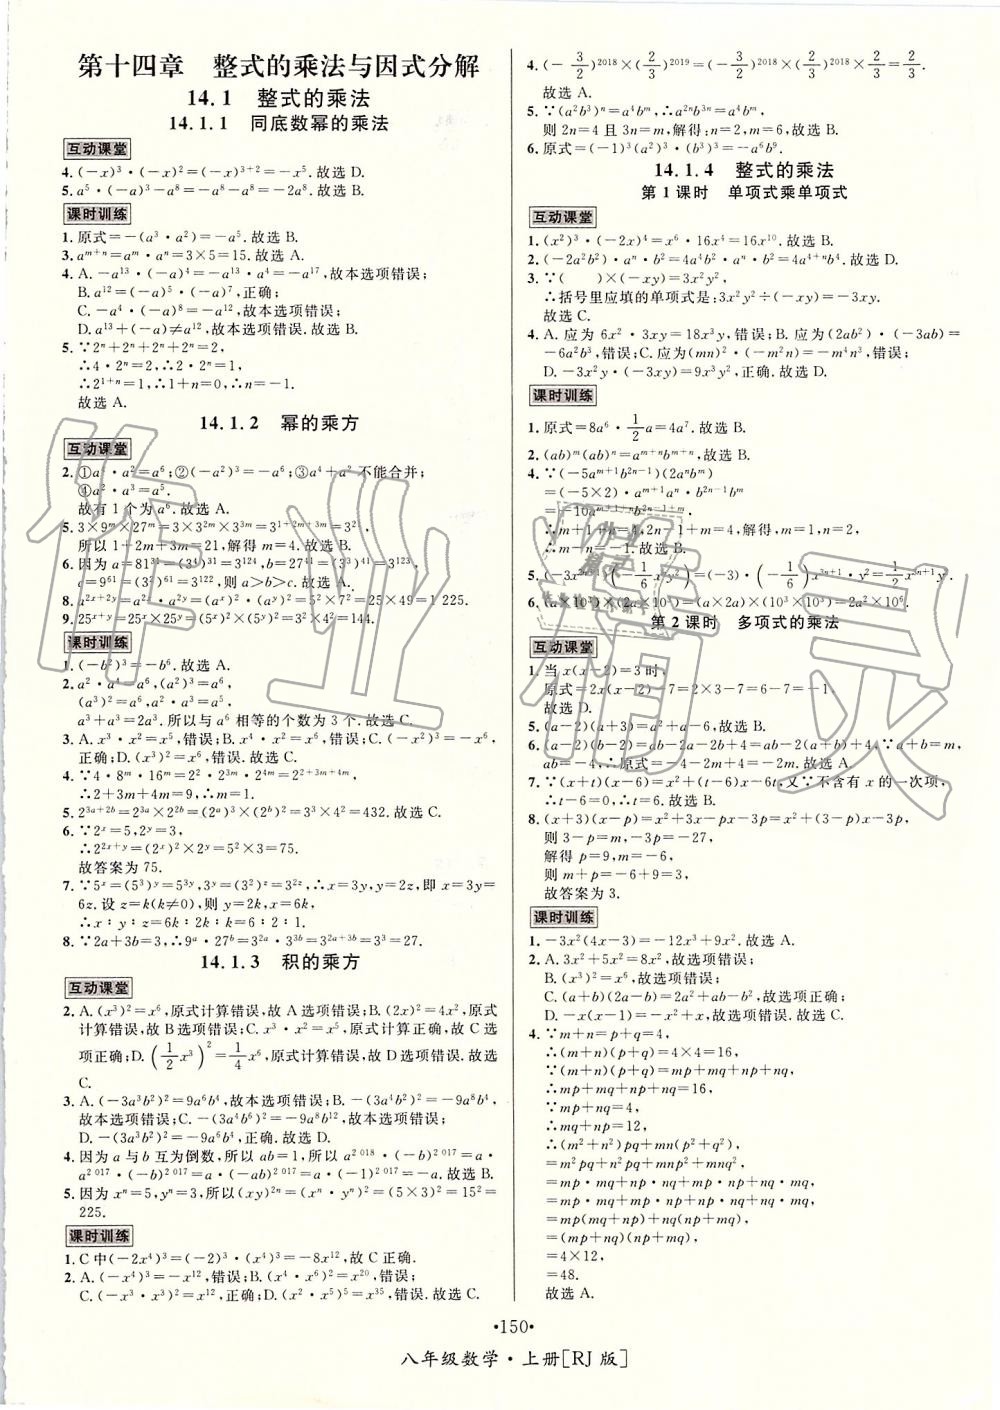 第十四章 整式的乘法与因式分解
14.1 整式的乘法
14.1.1 同底数幂的乘法
互动课堂
4. (-x)³·(-x)²=(-x)³⁺²=-x⁵.故选 D.
5. a⁵·(-a)³-a⁸=-a⁸-a⁸=-2a⁸.故选 B.
课时训练
1. 原式=-(a³·a²)=-a⁵.故选 B.
3. aᵐ⁺ⁿ=aᵐ·aⁿ=3×5=15.故选 A.
4. A. -a¹³·(-a)⁴=-a¹³·a⁴=-a¹⁷,故本选项错误;
B. a¹²=(-a)⁵·(-a)⁷,正确;
C. -a⁴·(-a)⁸=-a¹²,故本选项错误;
D. a¹³+(-a)≠a¹²,故本选项错误.故选 B.
5. ∵2ⁿ+2ⁿ+2ⁿ+2ⁿ=2,
∴4·2ⁿ=2,∴2·2ⁿ=1,
∴2¹⁺ⁿ=1,∴1+n=0,∴n=-1.
故选 A.
14.1.2 幂的乘方
互动课堂
2. ①a⁴·a²=a⁶;②(-a²)³=-a⁶;③a⁴+a² 不能合并;
④a²·a³=a⁵.
故有 1 个为 a⁶.故选 A.
5. 3×9ᵐ×27ᵐ=3×3²ᵐ×3³ᵐ=3¹⁺²ᵐ⁺³ᵐ=3²¹,
所以 1+2m+3m=21,解得 m=4.故选 A.
6. 因为 a=81³¹=(3⁴)³¹=3¹²⁴,b=27⁴¹=(3³)⁴¹=3¹²³,
c=9⁶¹=(3²)⁶¹=3¹²²,则 a>b>c.故选 A.
8. a²ˣ⁺²ʸ=a²ˣ·a²ʸ=(aˣ)²·(aʸ)²=5²×7²=25×49=1 225.
9. 25ˣ⁺ʸ=25ˣ×25ʸ=(5ˣ)²×(5ʸ)²=3²×4²=144.
课时训练
1. (-b²)³=-b⁶.故选 A.
2. a²·a⁴=a⁶,(a²)³=a⁶,
(a³)²=a⁶,a²·a³=a⁵,
a³+a³=2a³.所以与 a⁶ 相等的个数为 3 个.故选 C.
3. A. x³·x²=x⁵,错误;B. x⁴·x²=x⁶,错误;C. (-x²)³=-x⁶,
正确;D. (x³)²=x⁶,错误.故选 C.
4. ∵4·8ᵐ·16ᵐ=2²·2³ᵐ·2⁴ᵐ=2²⁺³ᵐ⁺⁴ᵐ,
∴2+3m+4m=9,∴m=1.
5. 2³ᵃ⁺²ᵇ=2³ᵃ×2²ᵇ=(2ᵃ)³×(2ᵇ)²=3³×4²=432.故选 C.
6. ∵2ˣ=5,2ʸ=3,
∴2²ˣ⁺ʸ=(2ˣ)²×2ʸ=5²×3=75.
故答案为 75.
7. ∵5ˣ=(5³)ʸ=5³ʸ,3ʸ=(3²)ᶻ=3²ᶻ,∴x=3y,y=2z,即 x=3y=
6z.设 z=k(k≠0),则 y=2k,x=6k,
∴x∶y∶z=6k∶2k∶k=6∶2∶1.
8. ∵2a+3b=3,∴9ᵃ·27ᵇ=3²ᵃ·3³ᵇ=3²ᵃ⁺³ᵇ=3³=27.
14.1.3 积的乘方
互动课堂
2. A. (x³)²=x⁶,原式计算错误,故 A 选项错误;B. (2x)²=4x²,原式
计算错误,故 B 选项错误;C. x³·x²=x⁵,原式计算正确,故 C 选
项正确;D. (1/2 x³)²=1/4 x⁶,原式计算错误,故 D 选项错误.故选
C.
3. A. (-3a³b²)²=9a⁶b⁴,故本选项错误;B. -(3a⁴b²)²=-9a⁸b⁴,
故本选项错误;C. -(3a⁴b⁶)²=-9a⁸b¹²,故本选项错误;
D. -(3a³b²)²=-9a⁶b⁴,正确.故选 D.
4. 因为 a 与 b 互为倒数,所以 ab=1,所以 a²⁰¹⁸·(-b)²⁰¹⁷=a·
a²⁰¹⁷·(-b)²⁰¹⁷=a·(-ab)²⁰¹⁷=a·(-1)²⁰¹⁷=-a.故选 B.
5. 因为 xⁿ=5,yⁿ=3,所以(xy)²ⁿ=(xⁿ·yⁿ)²=(5×3)²=15²=
225.
课时训练
1. C 中(-2x⁴)³=(-2)³·(x⁴)³=-8x¹²,故 C 正确.
2. A. (-x⁴)³=-x¹²,错误;B. (x⁴·x⁶)²=x²⁰,错误;
C. (-x³·x³)²=x¹²,错误;D. (x²·x⁵)⁵=x³⁵,错误.故选 C.
4. (-3/2)²⁰¹⁸×(2/3)²⁰¹⁹=(-3/2)²⁰¹⁸×(2/3)²⁰¹⁸×2/3=2/3.
故选 A.
5. ∵(a²b³)ⁿ=a⁴bᵐ,∴a²ⁿb³ⁿ=a⁴bᵐ,
则 2n=4 且 3n=m,解得:n=2,m=6,故选 B.
6. 原式=(-1)³(a²)³·(b³)³=-a⁶b⁹.
14.1.4 整式的乘法
第 1 课时 单项式乘单项式
互动课堂
1. (x²)³·(-2x)⁴=x⁶·16x⁴=16x¹⁰.故选 B.
2. (-2a²b²)²·aⁿ·b²=4a⁴b²·aⁿ·b²=4a⁴⁺ⁿb⁴.故选 D.
3. ∵( )×(-xy)=3x²y²,
∴括号里应填的单项式是:3x²y²÷(-xy)=-3xy.
故选 C.
4. A. 应为 6x²·3xy=18x³y,错误;B. 应为(2ab²)·(-3ab)=
-6a²b³,错误;C. 应为(mn)²·(-m²n)=-m⁴n³,错误;
D. -3x²y·(-3x²y)=9x⁴y²,正确.故选 D.
课时训练
1. 原式=8a⁶·1/2a=4a⁷.
2. (ab)ᵐ(ab)ⁿ=aᵐ⁺ⁿbᵐ⁺ⁿ.故选 C.
4. ∵(-5aᵐ⁺¹b²ⁿ⁻¹)(2aⁿbᵐ)
=(-5×2)·aᵐ⁺¹aⁿ·b²ⁿ⁻¹bᵐ
=-10aᵐ⁺¹⁺ⁿb²ⁿ⁻¹⁺ᵐ.
∴m+1+n=4,2n-1+m=4,解得,m=1,n=2,
∴m-n=-1.故选 B.
5. (-3x³ⁿ⁺¹)(-1/6 xⁿy)=(-3)·(-1/6)x³ⁿ⁺¹·xⁿy=1/2x³ⁿ⁺¹y.
6. (a×10³)×(2a×10³)=(a×2a)×(10³×10³)=2a²×10⁶.
第 2 课时 多项式的乘法
互动课堂
1. 当 x(x-2)=3 时,
原式=2x(x-2)-7=2×3-7=6-7=-1.
故选 D.
5. (a-2)(a+3)=a²+a-6,故选 B.
6. (a-2)(b-2)=ab-2a-2b+4=ab-2(a+b)+4.∵a+b=m,
ab=-4,∴原式=-4-2m+4=-2m.故选 A.
7. ∵(x+t)(x-6)=x²+(t-6)x-6t,又∵不含有 x 的一次项,
∴t-6=0,∴t=6.
8. (x+3)(x-p)=x²+3x-px-3p=x²+(3-p)x-3p,
则 3-p=m,-3p=-27,
解得 p=9,m=-6.
则 m+p=-6+9=3.
故答案为 3.
课时训练
1. -3x²(4x-3)=-12x³+9x².故选 A.
2. A. 3x²+5x²=8x²,故选项错误;
B. (x³)²=x⁶,故选项错误;
C. (a+b)(2a-b)=2a²+ab-b²,故选项正确;
D. -x(x-1)=-x²+x,故选项错误.故选 C.
4. ∵m+n=p+q=4,
∴(m+n)(p+q)=4×4=16,
∵(m+n)(p+q)=mp+mq+np+nq,
∴mp+mq+np+nq=16,
∵mp+nq=4,
∴mq+np=12,
∴(m²+n²)pq+mn(p²+q²)
=m²pq+n²pq+mnp²+mnq²
=mp·mq+np·nq+mp·np+nq·mq,
=mp·mq+mp·np+np·nq+nq·mq,
=mp(mq+np)+nq(np+mq),
=(mp+nq)(np+mq),
=4×12,
=48.
故选 A.
·150·
八年级数学·上册[RJ 版]
作业精灵